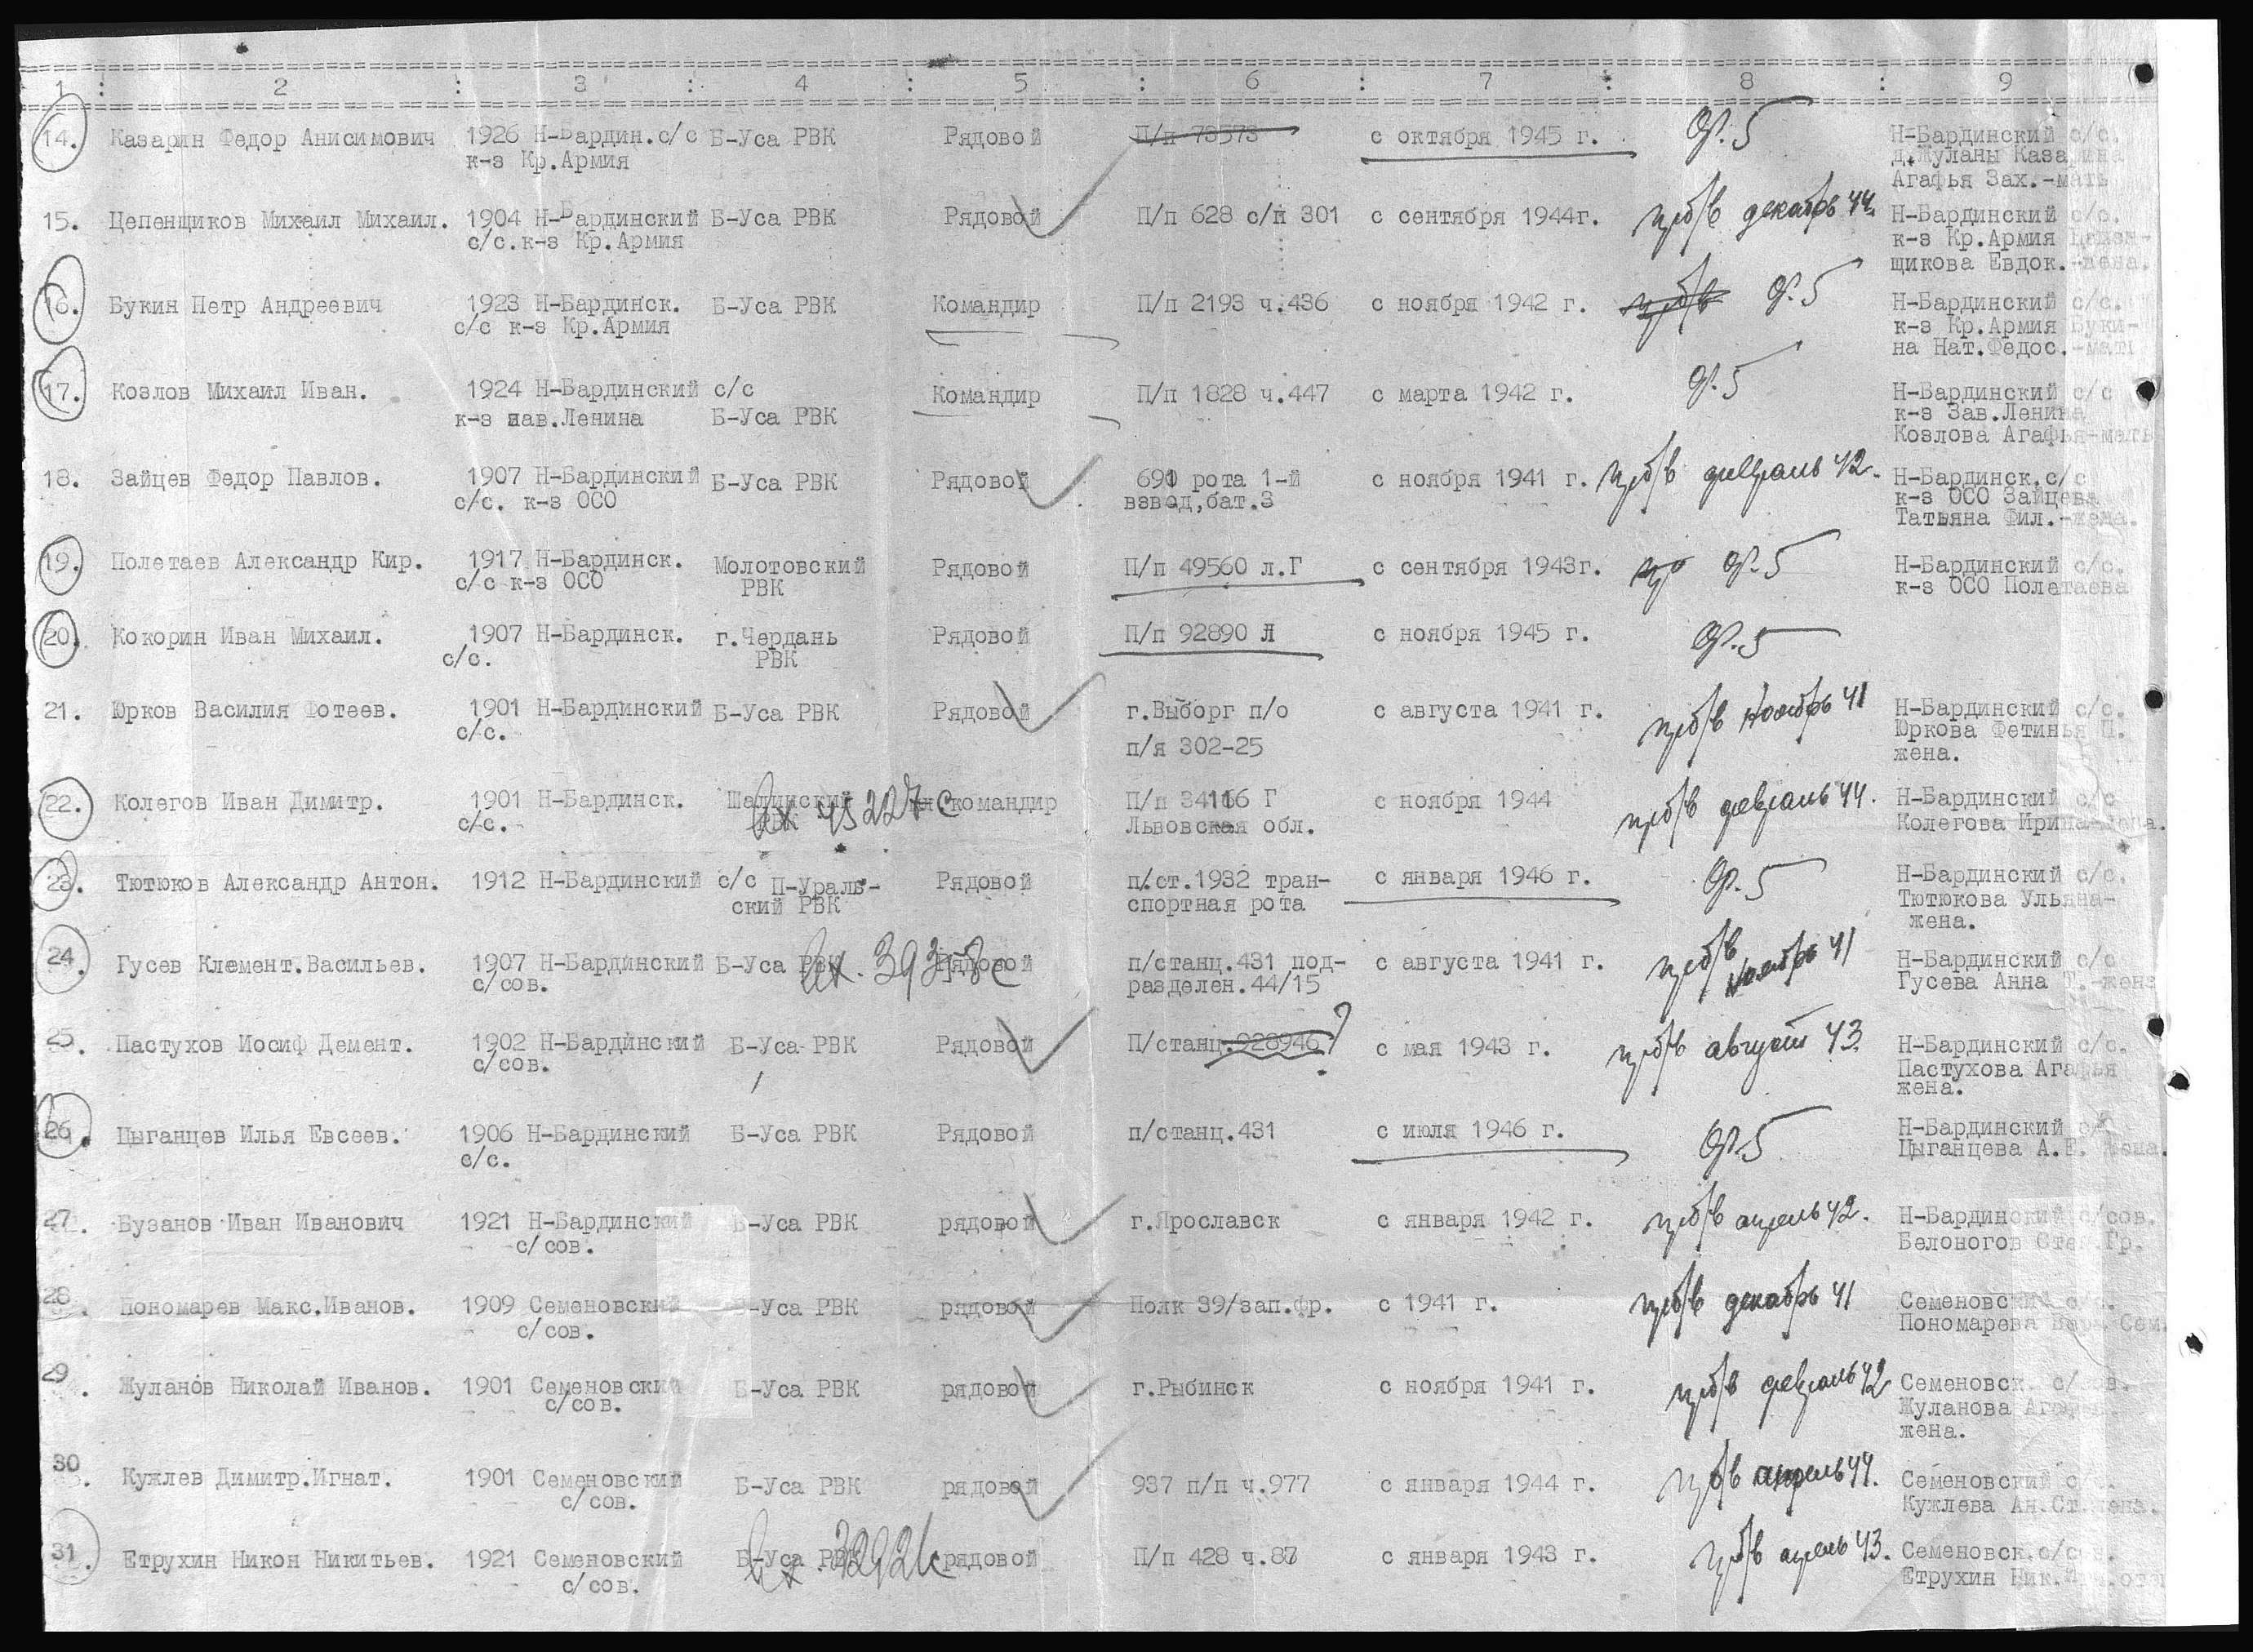 1 : 2 : 3 : 4 : 5 : 6 : 7 : 8 : 9
14. Казарин Федор Анисимович 1926 Н-Бардин.с/с Б-Уса РВК Рядовой П/п 73573 с октября 1945 г. ф.5 Н-Бардинский с/с.
к-з Кр.Армия д.Жуланы Казарина
Агафья Зах.-мать
15. Цепенщиков Михаил Михаил. 1904 Н-Бардинский Б-Уса РВК Рядовой П/п 628 с/п 301 с сентября 1944г. пр/б/в декабрь 44. Н-Бардинский с/с.
с/с.к-з Кр.Армия к-з Кр.Армия Цепен-
щикова Евдок.-жена.
16. Букин Петр Андреевич 1923 Н-Бардинск. Б-Уса РВК Командир П/п 2193 ч.436 с ноября 1942 г. пр/б/в ф.5 Н-Бардинский с/с.
с/с к-з Кр.Армия к-з Кр.Армия Буки-
на Нат.Федос.-мать
17. Козлов Михаил Иван. 1924 Н-Бардинский с/с Командир П/п 1828 ч.447 с марта 1942 г. ф.5 Н-Бардинский с/с
к-з зав.Ленина Б-Уса РВК к-з Зав.Ленина
Козлова Агафья-мать
18. Зайцев Федор Павлов. 1907 Н-Бардинский Б-Уса РВК Рядовой 691 рота 1-й с ноября 1941 г. пр/б/в февраль 42. Н-Бардинск.с/с
с/с. к-з ОСО взвод,бат.3 к-з ОСО Зайцева
Татьяна Фил.-жена.
19. Полетаев Александр Кир. 1917 Н-Бардинск. Молотовский Рядовой П/п 49560 л.Г с сентября 1943г. пр ф.5 Н-Бардинский с/с.
с/с к-з ОСО РВК к-з ОСО Полетаева
20. Кокорин Иван Михаил. 1907 Н-Бардинск. г.Чердань Рядовой П/п 92890 Л с ноября 1945 г. ф.5
с/с. РВК
21. Юрков Василия Фотеев. 1901 Н-Бардинский Б-Уса РВК Рядовой г.Выборг п/о с августа 1941 г. пр/б/в ноябрь 41 Н-Бардинский с/с.
с/с. п/я 302-25 Юркова Фетинья П.
жена.
22. Колегов Иван Димитр. 1901 Н-Бардинск. Шалинский командир П/п 34116 Г с ноября 1944 пр/б/в февраль 44. Н-Бардинский с/с
с/с. РВК Вх 45227с Львовская обл. Колегова Ирина-жена.
23. Тютюков Александр Антон. 1912 Н-Бардинский с/с П-Ураль- Рядовой п/ст.1932 тран- с января 1946 г. ф.5 Н-Бардинский с/с.
ский РВК спортная рота Тютюкова Ульяна-
жена.
24. Гусев Клемент.Васильев. 1907 Н-Бардинский Б-Уса РВК Рядовой п/станц.431 под- с августа 1941 г. пр/б/в ноябрь 41 Н-Бардинский с/с
с/сов. разделен.44/15 Гусева Анна Т.-жена
25. Пастухов Иосиф Демент. 1902 Н-Бардинский Б-Уса РВК Рядовой П/станц.928946 ? с мая 1943 г. пр/б/в август 43 Н-Бардинский с/с.
с/сов. Пастухова Агафья
жена.
26. Цыганцев Илья Евсеев. 1906 Н-Бардинский Б-Уса РВК Рядовой п/станц.431 с июля 1946 г. ф.5 Н-Бардинский с/с
с/с. Цыганцева А.Е. жена.
27. Бузанов Иван Иванович 1921 Н-Бардинский Б-Уса РВК рядовой г.Ярославск с января 1942 г. пр/б/в апрель 42. Н-Бардинский с/сов.
с/сов. Белоногов Степ.Гр.
28. Пономарев Макс.Иванов. 1909 Семеновский Б-Уса РВК рядовой Полк 39/зап.фр. с 1941 г. пр/б/в декабрь 41 Семеновский с/с.
с/сов. Пономарева Вера Сем.
29. Жуланов Николай Иванов. 1901 Семеновский Б-Уса РВК рядовой г.Рыбинск с ноября 1941 г. пр/б/в февраль 42 Семеновск. с/сов.
с/сов. Жуланова
жена.
30. Кужлев Димитр.Игнат. 1901 Семеновский Б-Уса РВК рядовой 937 п/п ч.977 с января 1944 г. пр/б/в апрель 44. Семеновский с/с.
с/сов. Кужлева Ан.Ст.жена.
31. Етрухин Никон Никитьев. 1921 Семеновский Б-Уса РВК рядовой П/п 428 ч.87 с января 1943 г. пр/б/в апрель 43. Семеновск.с/сов.
с/сов. Етрухин Ник.